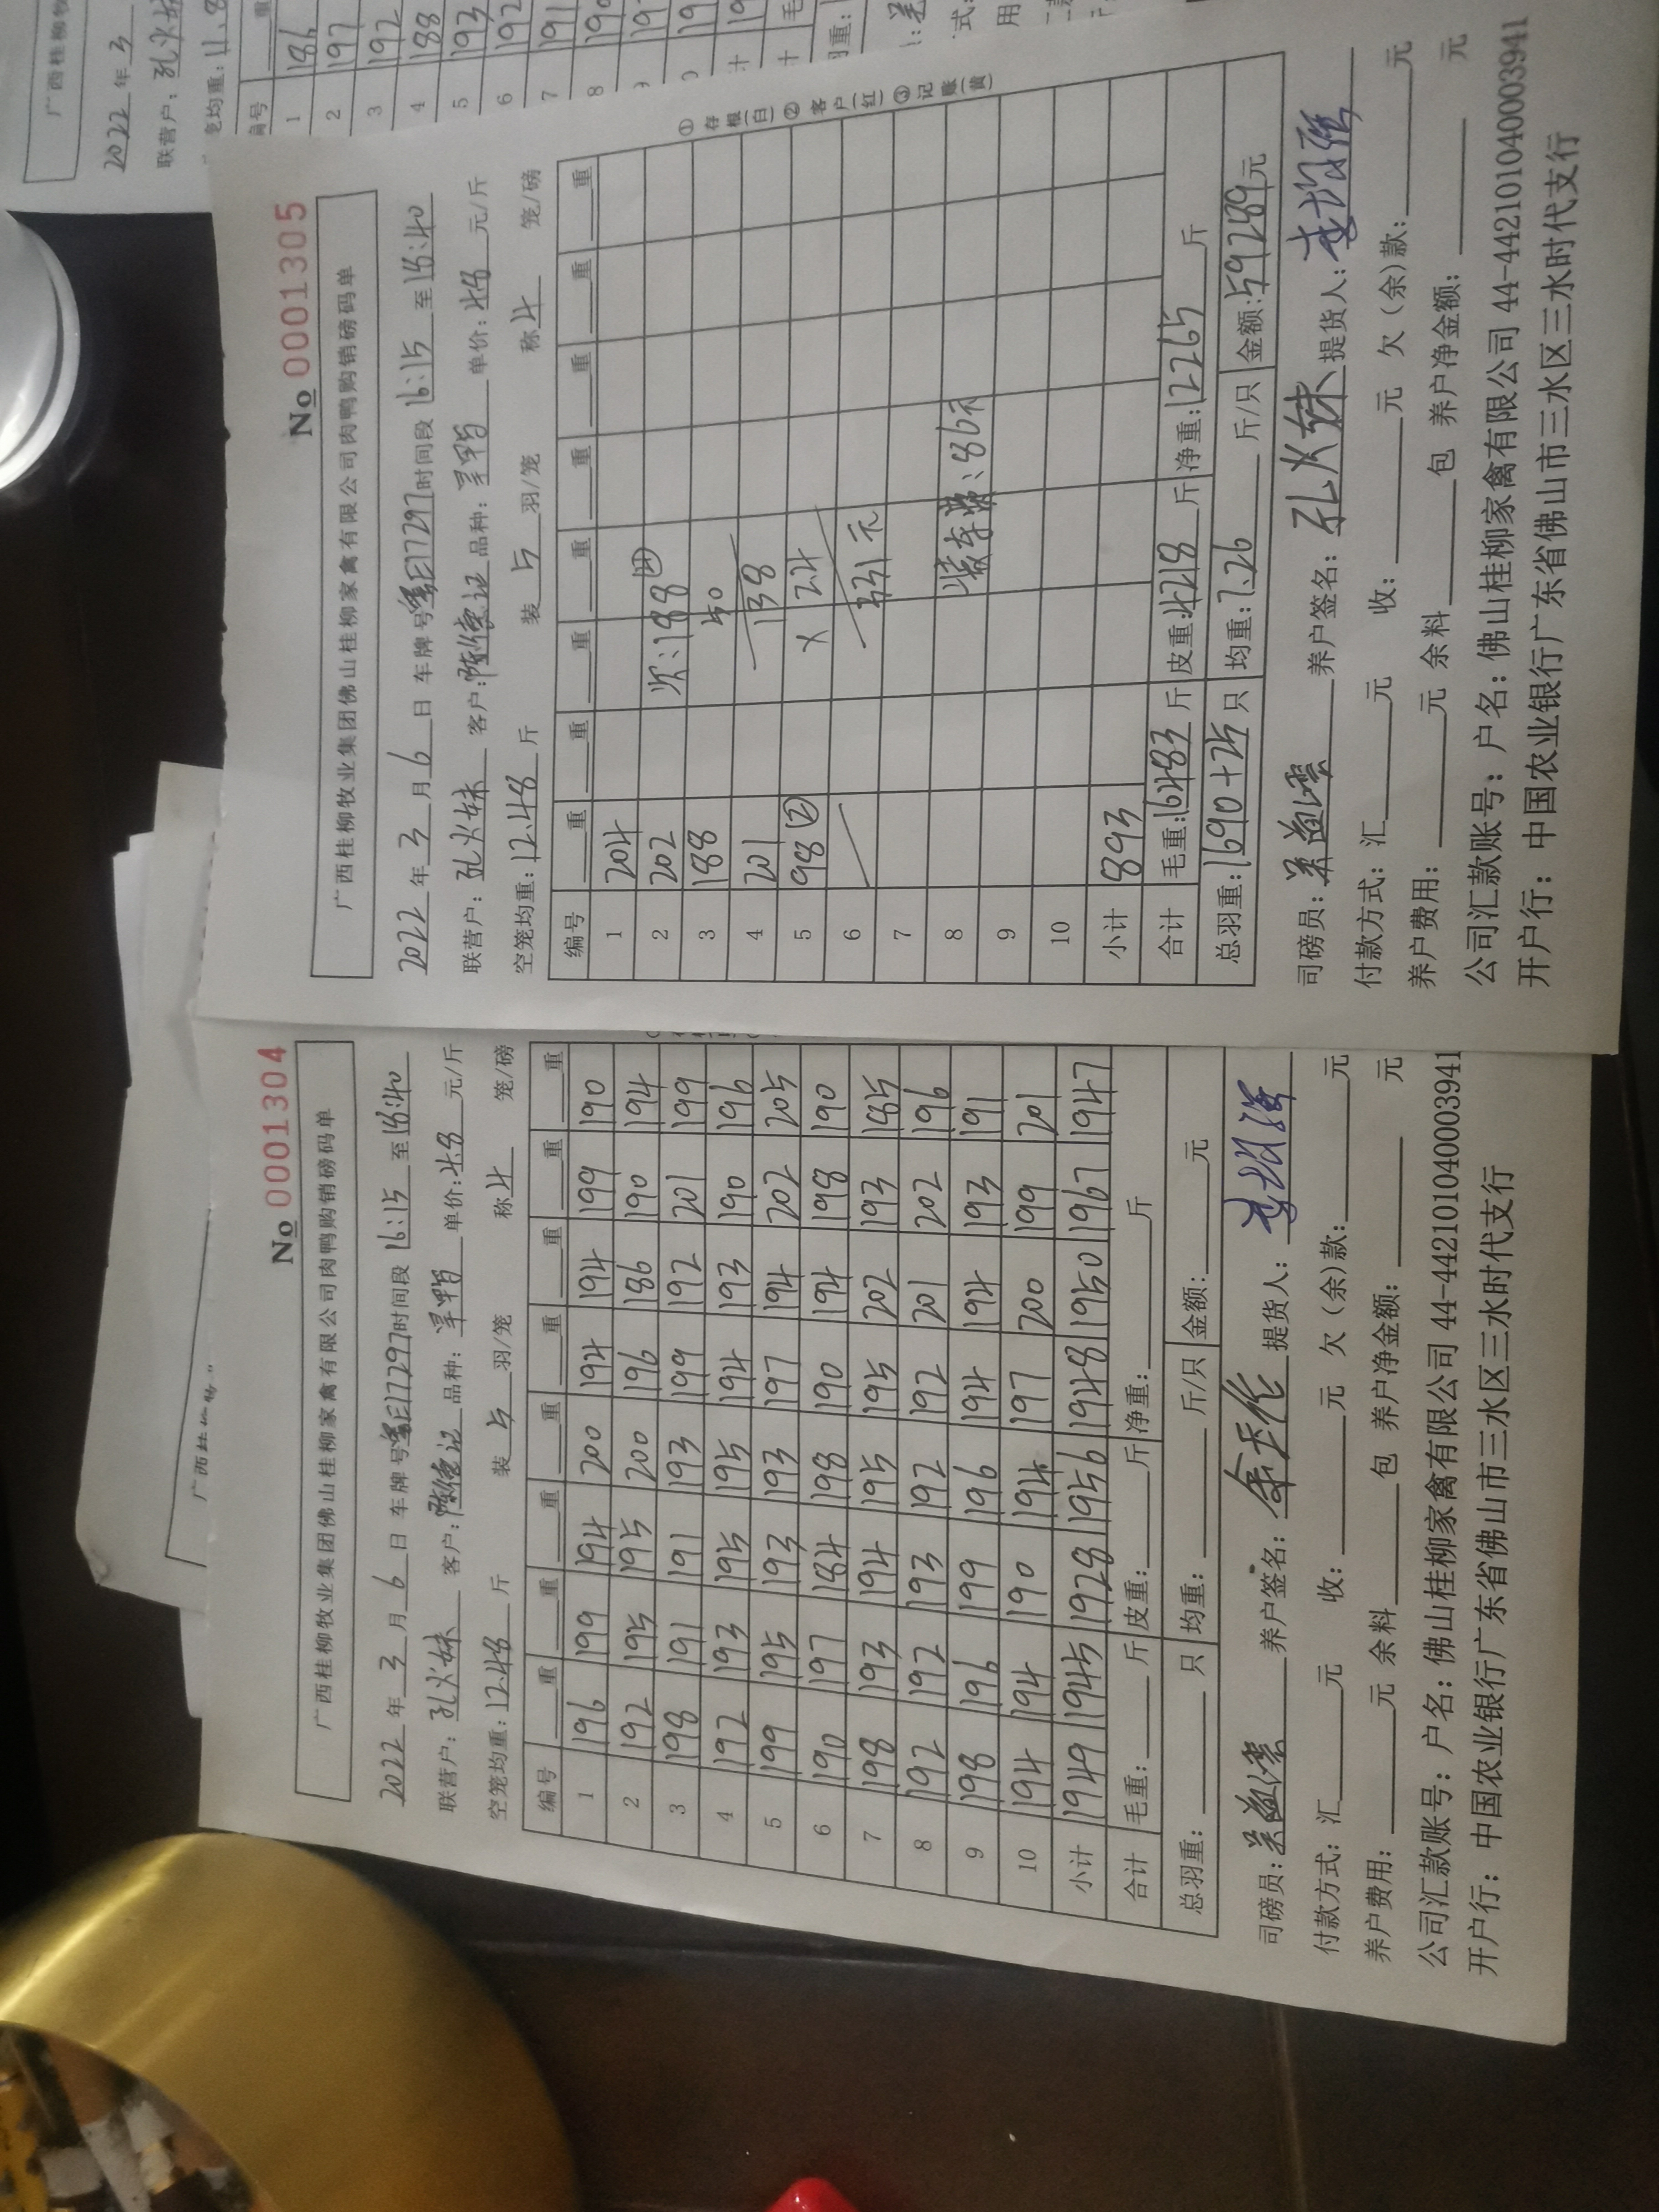 No 0001305
广西桂柳牧业集团佛山桂柳家禽有限公司肉鸭购销磅码单
2022年3月6日 车牌号 E17297 时间段 16:15 至 18:40
联营户: 孔火妹 客户: 陈德记 品种: 单价: 4.8 元/斤
空笼均重: 12.48 斤 装 5 羽/笼 称 4 笼/磅
编号 重 重 重 重 重 重 重 重
1 204
2 202 次:188 ④
3 188 50
4 201 138
5 98 ② × 2.4
6 331元
7
8 装车费:86元
9
10
小计 893
合计 毛重: 16483 斤 皮重: 4218 斤 净重: 12265 斤
总羽重: 1690+25 只 均重: 7.26 斤/只 金额: 59289元
司磅员: 养户签名: 孔火妹 提货人:
付款方式: 汇 元 收: 元 欠(余)款: 元
养户费用: 元 余料 包 养户净金额: 元
公司汇款账号: 户名: 佛山桂柳家禽有限公司 44-442101040003941
开户行: 中国农业银行广东省佛山市三水区三水时代支行
①存根(白)②客户(红)③记账(黄)
No 0001304
广西桂柳牧业集团佛山桂柳家禽有限公司肉鸭购销磅码单
2022年3月6日 车牌号 E17297 时间段 16:15 至 18:40
联营户: 孔火妹 客户: 陈德记 品种: 单价: 4.8 元/斤
空笼均重: 12.48 斤 装 5 羽/笼 称 4 笼/磅
编号 重 重 重 重 重 重 重 重
1 196 199 194 200 194 194 199 190
2 192 195 195 200 196 186 190 194
3 198 191 191 193 199 192 201 199
4 192 193 195 195 194 193 190 196
5 199 195 193 193 197 194 202 205
6 190 197 184 198 190 194 198 190
7 198 193 194 195 195 202 193 185
8 192 192 193 192 192 201 202 196
9 198 196 199 196 194 194 193 191
10 194 194 190 194 197 200 199 201
小计 1949 1945 1928 1956 1948 1950 1967 1947
合计 毛重: 斤 皮重: 斤 净重: 斤
总羽重: 只 均重: 斤/只 金额: 元
司磅员: 养户签名: 提货人:
付款方式: 汇 元 收: 元 欠(余)款: 元
养户费用: 元 余料 包 养户净金额: 元
公司汇款账号: 户名: 佛山桂柳家禽有限公司 44-442101040003941
开户行: 中国农业银行广东省佛山市三水区三水时代支行
广西桂柳牧
2022年3
联营户:
笼均重: 11.8
编号 重
1 186
2 197
3 192
4 188
5 193
6 192
7 191
8 190